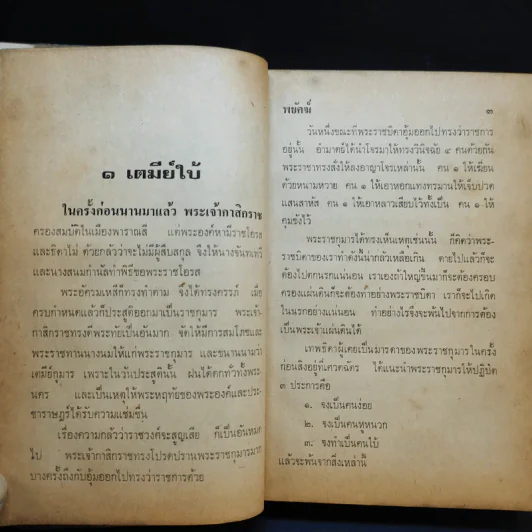 ๑ เตมีย์ใบ้
ในครั้งก่อนนานมาแล้ว พระเจ้ากาสิกราช
ครองสมบัติในเมืองพาราณสี แต่พระองค์หามีราชโอรส
และธิดาไม่ ด้วยกลัวว่าจะไม่มีผู้สืบสกุล จึงให้นางจันทเทวี
และนางสนมกำนัลทำพิธีขอพระราชโอรส
พระอัครมเหสีก็ทรงทำตาม จึงได้ทรงครรภ์ เมื่อ
ครบกำหนดแล้วก็ประสูติออกมาเป็นราชกุมาร พระเจ้า-
กาสิกราชทรงดีพระทัยเป็นอันมาก จัดให้มีการสมโภชและ
พระราชทานนางนมให้แก่พระราชกุมาร และขนานนามว่า
เตมีย์กุมาร เพราะในวันประสูตินั้น ฝนได้ตกทั่วทั้งพระ
นคร และเป็นเหตุให้พระหฤทัยของพระองค์และประ-
ชาราษฎร์ได้รับความแช่มชื่น
เรื่องความกลัวว่าราชวงศ์จะสูญเสีย ก็เป็นอันหมด
ไป พระเจ้ากาสิกราชทรงโปรดปรานพระราชกุมารมาก
บางครั้งถึงกับอุ้มออกไปทรงว่าราชการด้วย
พยัคฆ์ ๓
วันหนึ่งขณะที่พระราชบิดาอุ้มออกไปทรงว่าราชการ
อยู่นั้น อำมาตย์ได้นำโจรมาให้ทรงวินิจฉัย ๔ คนด้วยกัน
พระราชาทรงสั่งให้ลงอาญาโจรเหล่านั้น คน ๑ ให้เฆี่ยน
ด้วยหนามหวาย คน ๑ ให้เอาหอกแทงทรมานให้เจ็บปวด
แสนสาหัส คน ๑ ให้เอาหลาวเสียบไว้ทั้งเป็น คน ๑ ให้
คุมขังไว้
พระราชกุมารได้ทรงเห็นเหตุเช่นนั้น ก็คิดว่าพระ-
ราชบิดาของเราทำดังนี้น่ากลัวเหลือเกิน ตายไปแล้วก็จะ
ต้องไปตกนรกแน่นอน เราเองถ้าใหญ่ขึ้นมาก็จะต้องครอบ
ครองแผ่นดินก็จะต้องทำอย่างพระราชบิดา เราก็จะไปเกิด
ในนรกอย่างแน่นอน ทำอย่างไรจึงจะพ้นไปจากการต้อง
เป็นพระเจ้าแผ่นดินได้
เทพธิดาผู้เคยเป็นมารดาของพระราชกุมารในครั้ง
ก่อนสิงอยู่ที่เศวตฉัตร ได้แนะนำพระราชกุมารให้ปฏิบัติ
๓ ประการคือ
๑. จงเป็นคนง่อย
๒. จงเป็นคนหูหนวก
๓. จงทำเป็นคนใบ้
แล้วจะพ้นจากสิ่งเหล่านี้